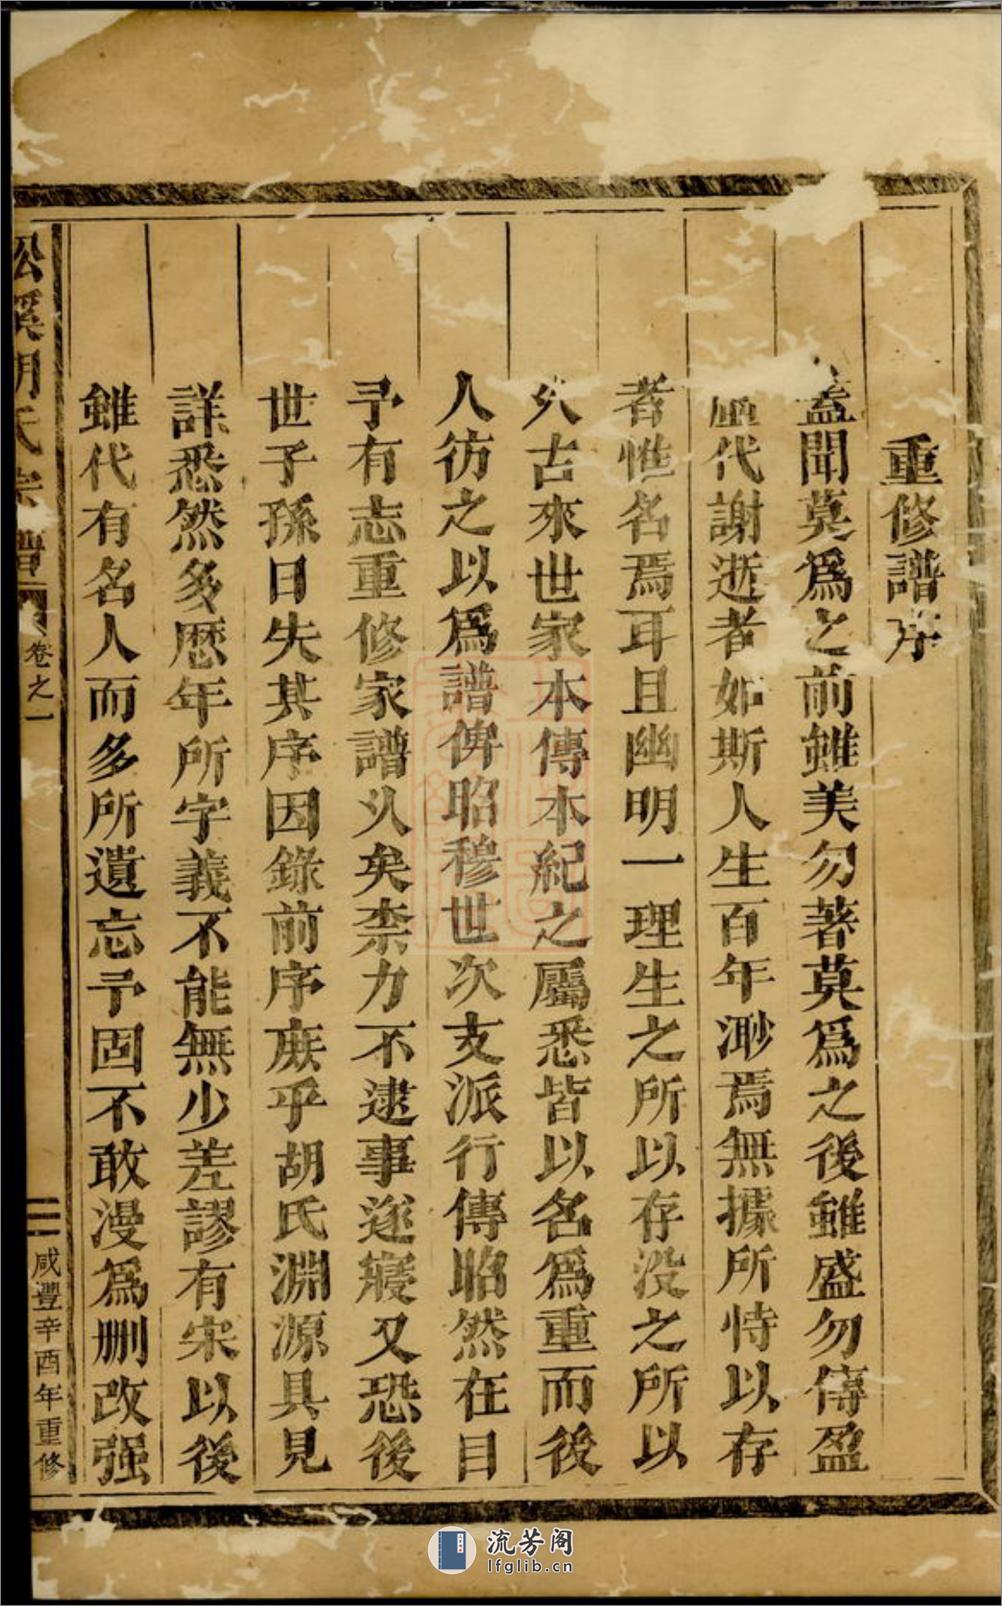 重修譜序
蓋聞莫爲之前雖美勿著莫爲之後雖盛勿傳盈
虛代謝逝者如斯人生百年渺焉無據所恃以存
者惟名焉耳且幽明一理生之所以存没之所以
久古來世家本傳本紀之屬悉皆以名爲重而後
人彷之以爲譜俾昭穆世次支派行傳昭然在目
予有志重修家譜乆矣柰力不逮事遂寢又恐後
世子孫日失其序因錄前序庶乎胡氏淵源具見
詳悉然多歷年所字義不能無少差謬有宋以後
雖代有名人而多所遺忘予固不敢漫爲删改强
松溪胡氏宗譜 卷之一 二 咸豐辛酉年重修
流芳阁
lfglib.cn